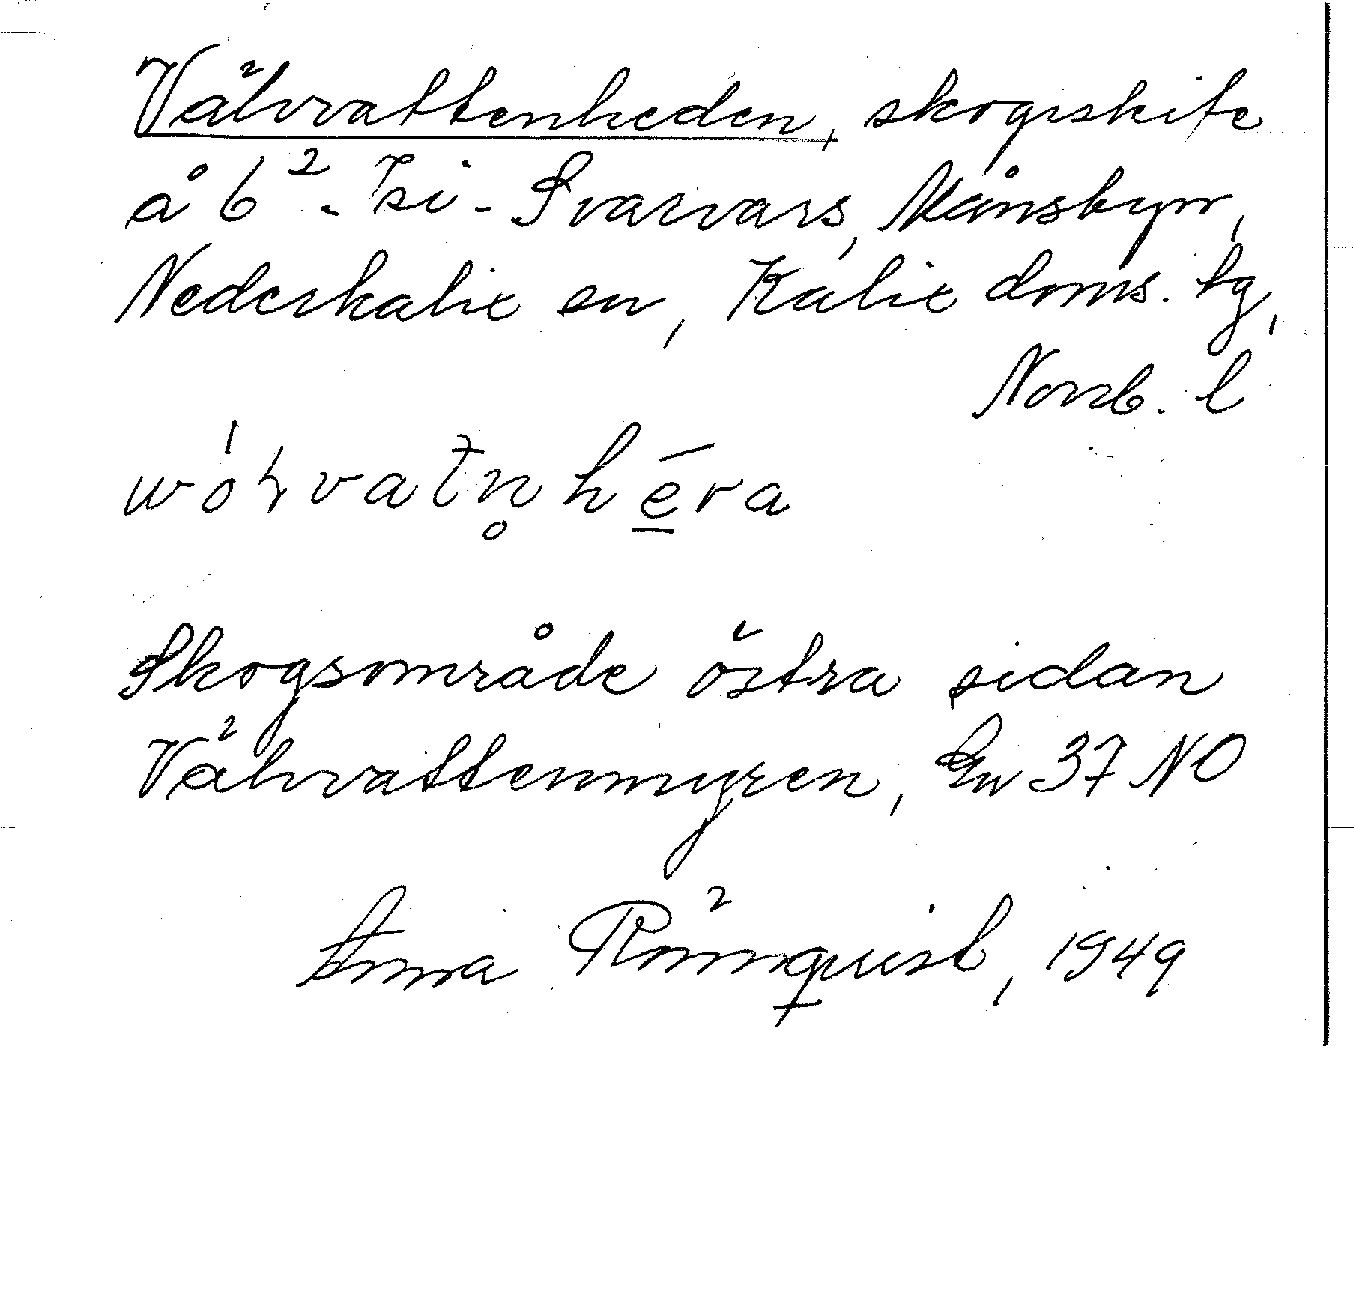 Välvvattenheden, skogsskifte
å 6² - Isi - Svarvars, Månsbyn,
Nederkalix sn, Kalix doms. tg,
Norrb. l
Skogsområde östra sidan
Välvvattenmyren, Ew 37 NO
Anna Rönnquist, 1949